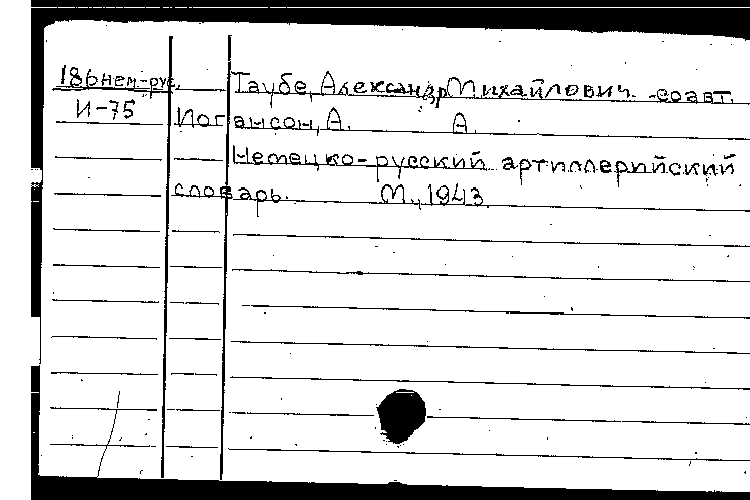 18бнем-рус. Таубе, Александр Михайлович. -соавт.
И-75 Иогансон, А. А.
Немецко-русский артиллерийский
словарь. М., 1943